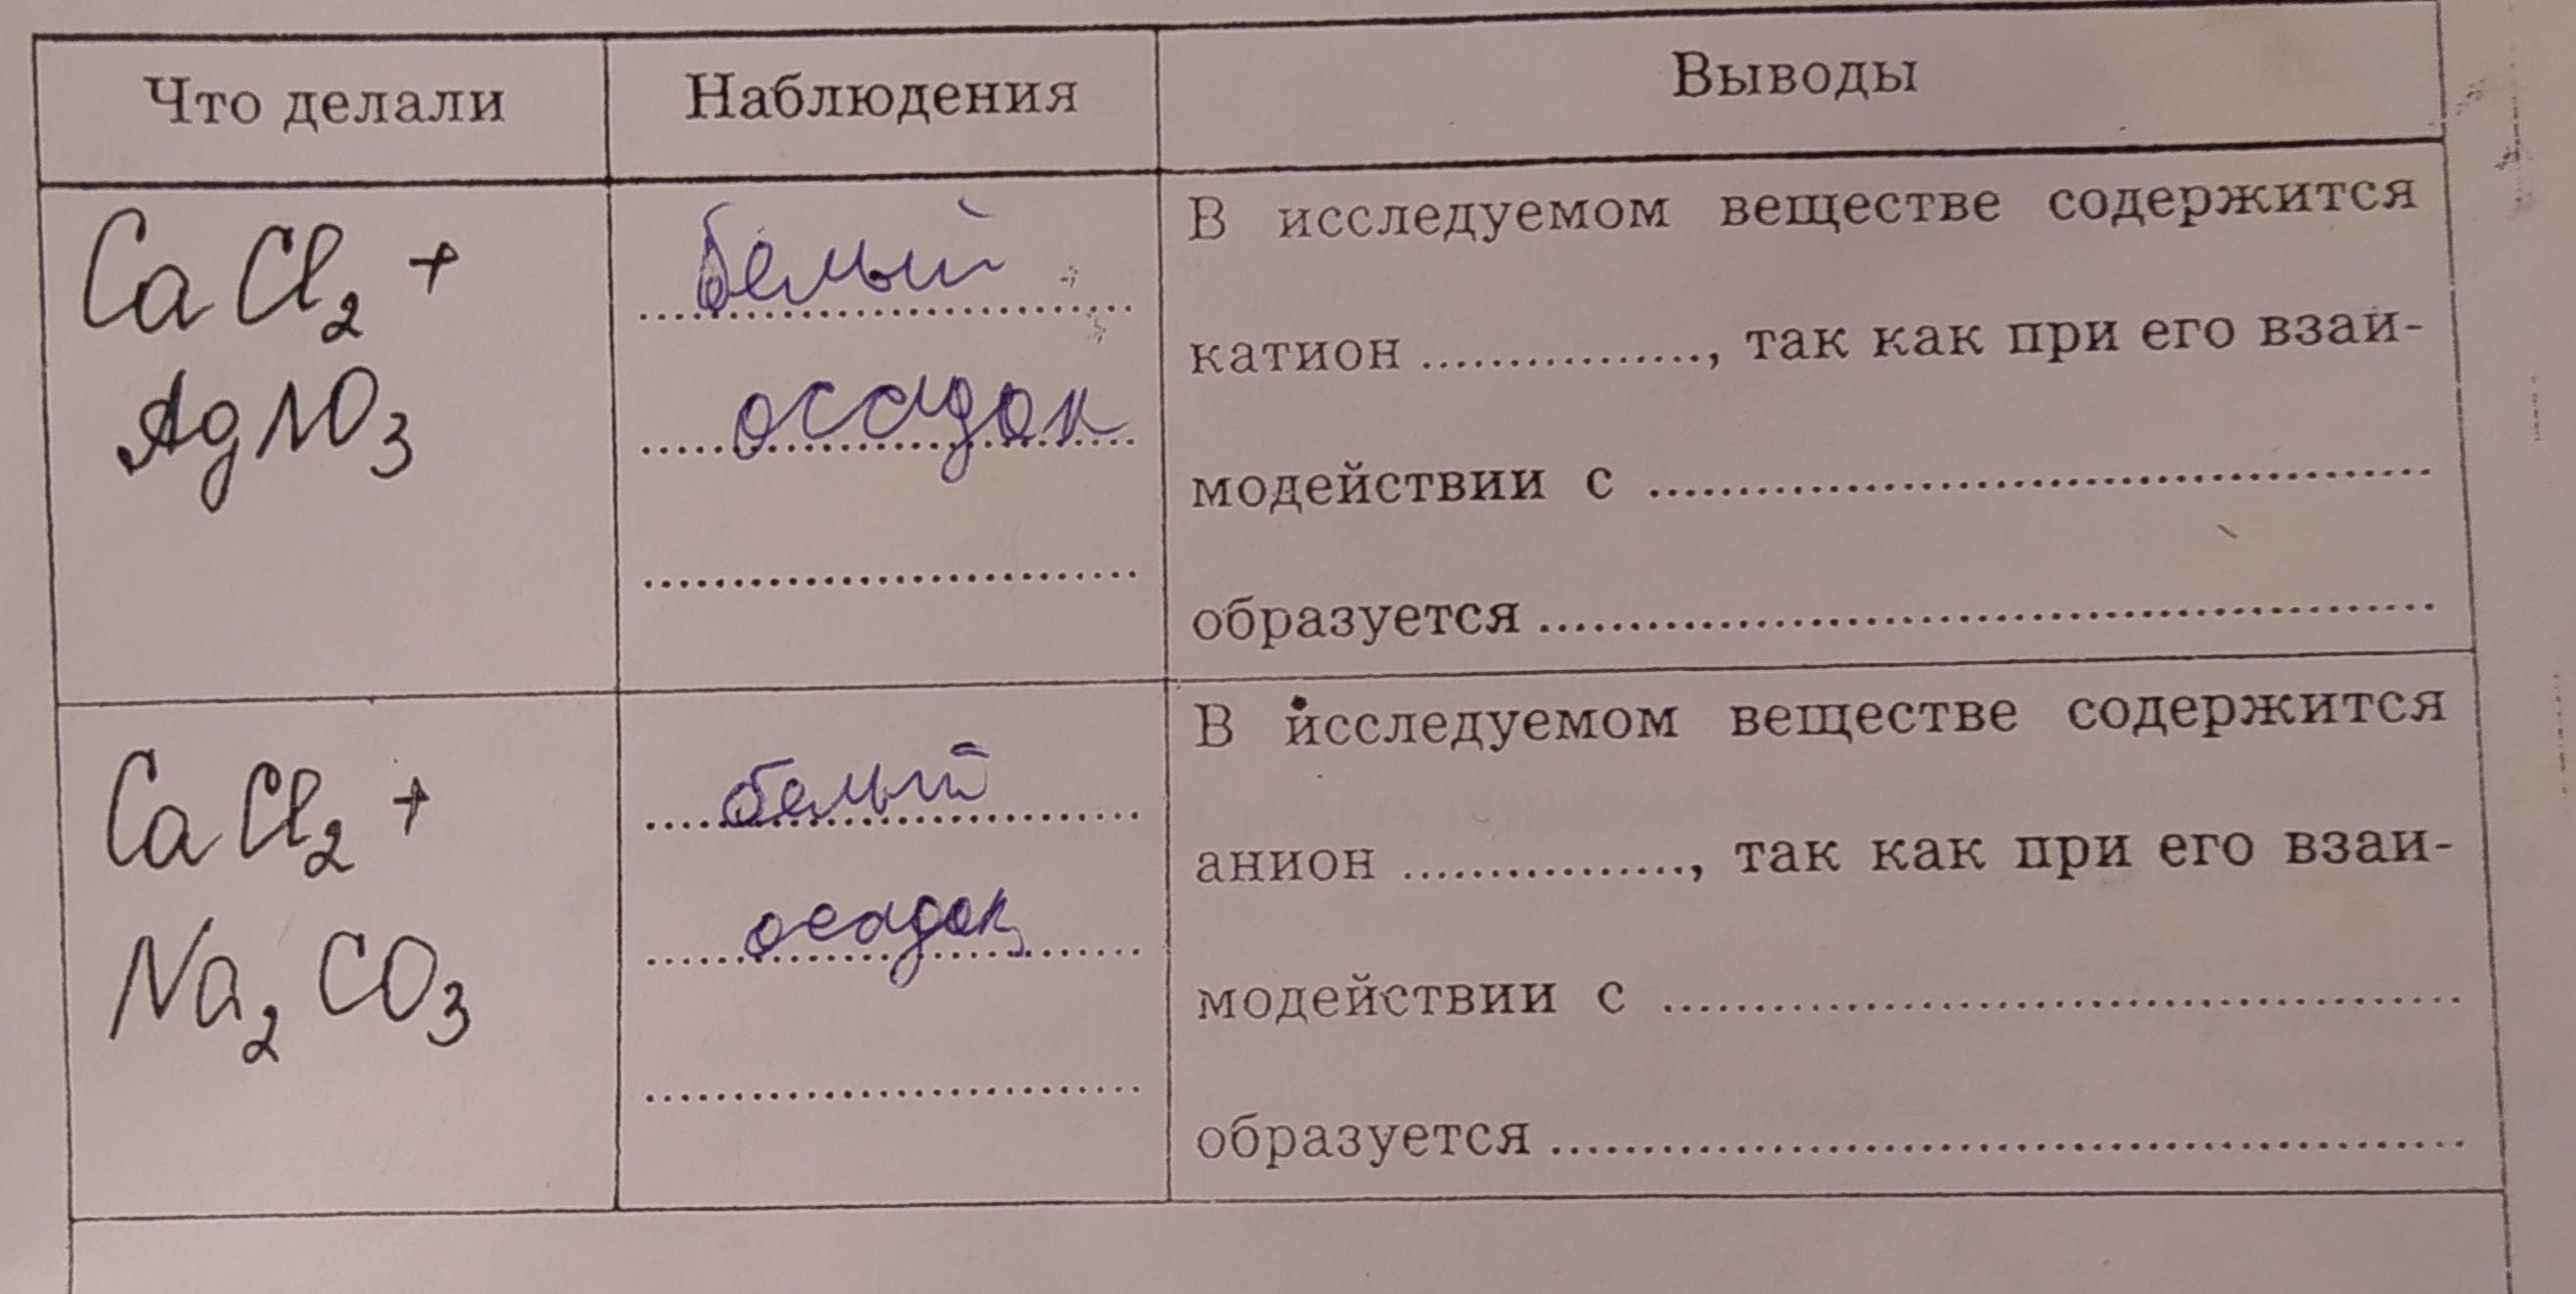 Что делали
Наблюдения
Выводы
CaCl₂ +
AgNO₃
белый
осадок
В исследуемом веществе содержится
катион ................, так как при его взаи-
модействии с ................................................
образуется ......................................................
CaCl₂ +
Na₂CO₃
белый
осадок
В исследуемом веществе содержится
анион ................, так как при его взаи-
модействии с ................................................
образуется ......................................................